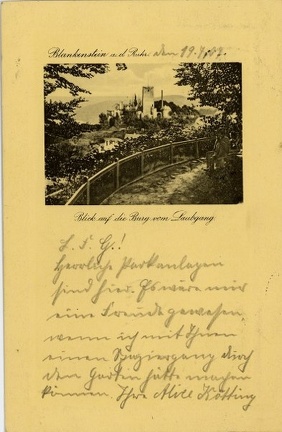 Blankenstein a. d. Ruhr. den 19.7.
Blick auf die Burg vom Laubgang
L. F. G.!
Herrliche Parkanlagen
sind hier. Es wäre mir
eine Freude gewesen,
wenn ich mit Ihnen
einen Spaziergang durch
den Garten hätte machen
können. Ihre Alice Kötting